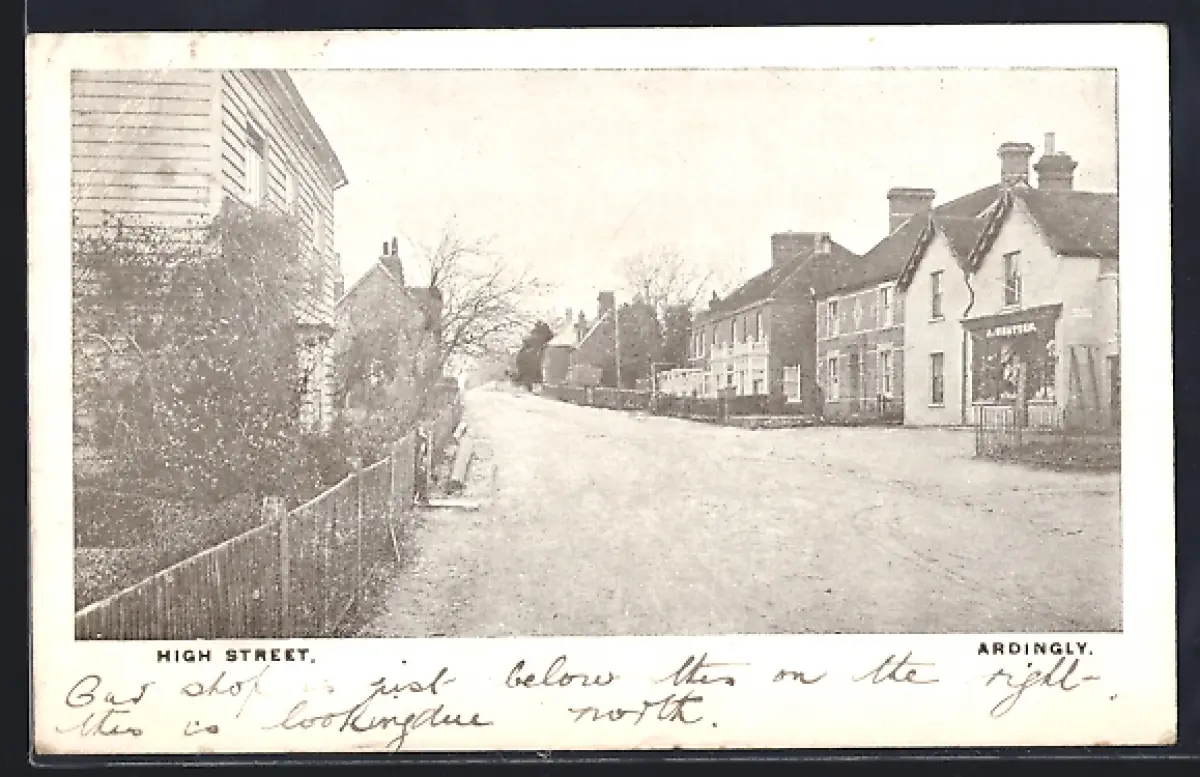 HIGH STREET.
ARDINGLY.
shop is just below this on the right.
this is looking due north.